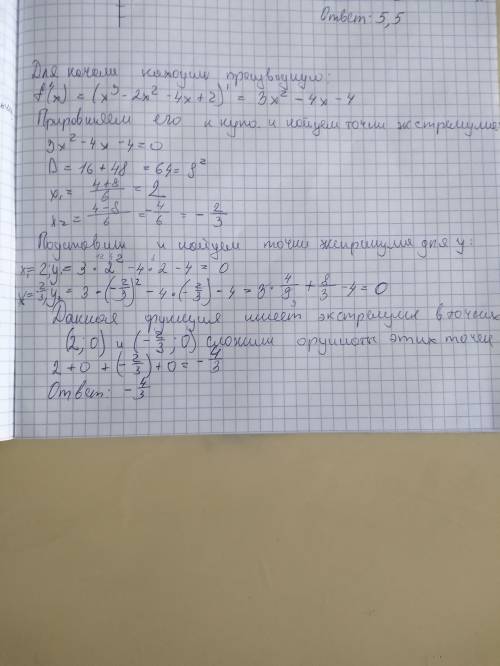 Ответ: 5,5
Для начала находим производную:
f'(x) = (x³ - 2x² - 4x + 2)' = 3x² - 4x - 4
Прировняем его к нулю и найдем точки экстремума
3x² - 4x - 4 = 0
D = 16 + 48 = 64 = 8²
x₁ = (4+8)/6 = 2
x₂ = (4-8)/6 = -4/6 = - 2/3
Подставим и найдем точки экстримума для y:
x₁= 2; y₁= 3 · 2² - 4 · 2 - 4 = 0
y₂ = 3 · (-2/3)² - 4 · (-2/3) - 4 = 3 · 4/9 + 8/3 - 4 = 0
Данная функция имеет экстремумы в точках
(2; 0) и (- 2/3; 0) сложим этих точек
2 + 0 + (-2/3) + 0 = - 4/3
Ответ: - 4/3